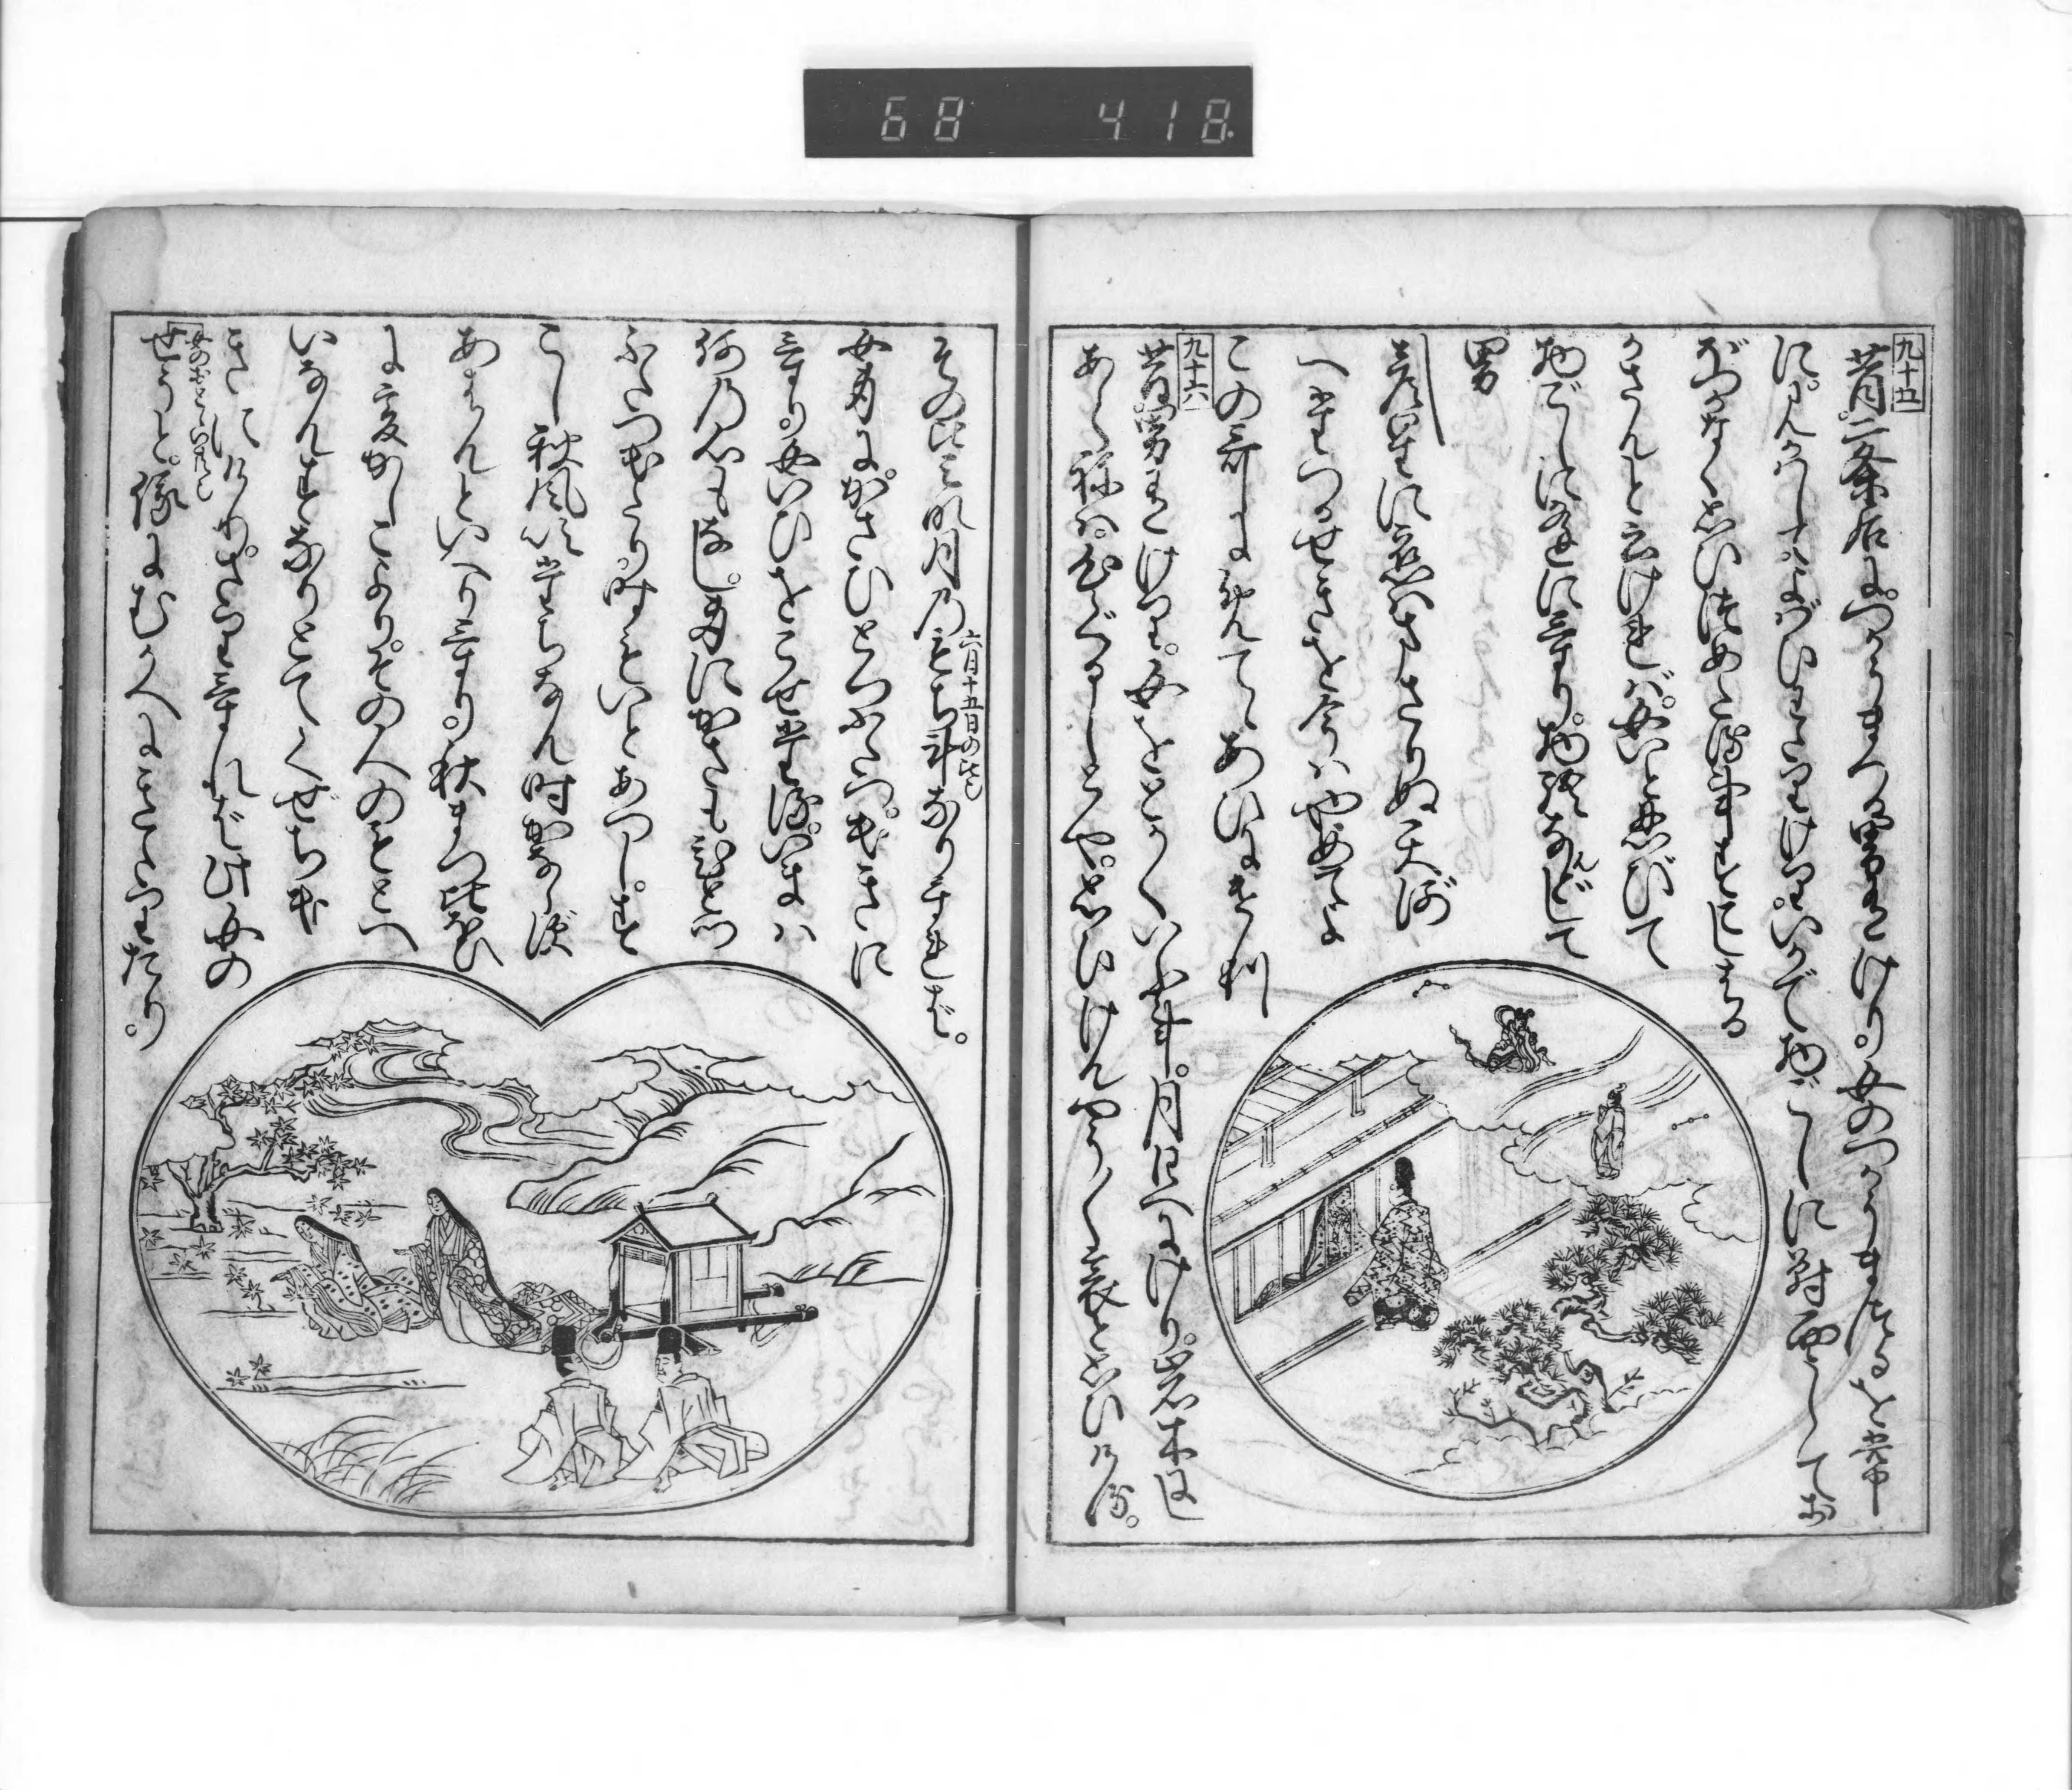 九十五
昔。二条后に。つかうまつる男有けり。女のつかうまつるを常
に。見かはして。よばひわたりけり。いかで物ごしに対面してお
ぼつかなく思ひつめたる事すこしはる
かさんと云ければ。女いと忍びて
物ごしに逢にけり。物語などして
男
彦星に恋はまさりぬ天河
へだつるせきを今はやめてよ
この哥にめでてあひにけり
九十六
昔男有けり。女をとかくいふ事。月日へにけり。岩木にし
あらねば。心ぐるしとや。思ひけんやうやう哀と思ひけり。
その比みな月乃もち斗なりければ。
六月十五日の比也
女身に。かさひとつふたつ。出きに
けり女いひをこせたる。いまは
何乃心もなし。身にかさも一つ
ふたつ出たり。時もいとあつし。すこ
こし秋風吹たちなん時かならず
あはんといへりけり。秋まつ比ほひ
に爰かしこより。その人のもとへ
いなんずなりとてくぜち出
きにけり。さりければ此女の
せうと。俄にむかへにきたり。